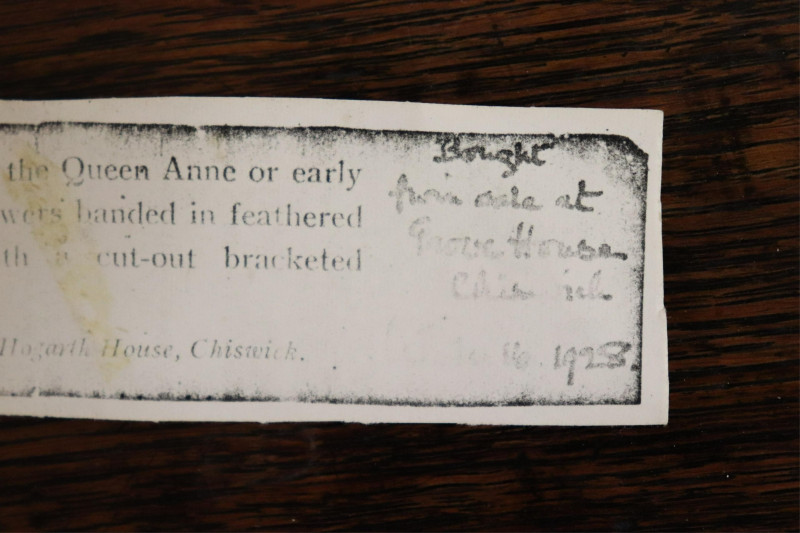 the Queen Anne or early
wers banded in feathered
th a cut-out bracketed
Hogarth House, Chiswick.
Bought
from sale at
Grove House
Chiswick
16. 1928.